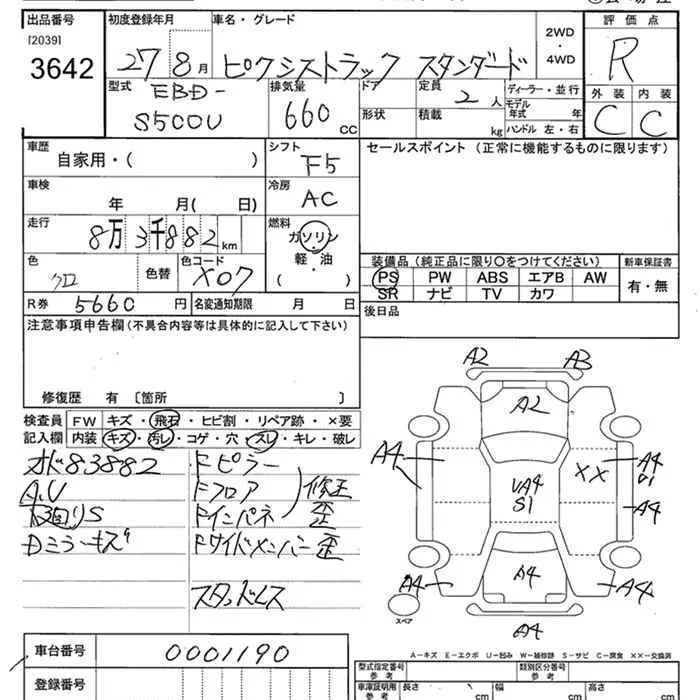 出品番号 初度登録年月 車名・グレード 2WD・4WD 評価点
[2039]
3642 27 8月 ピクシストラック スタンダード R
型式 EBD-S500U 排気量 660 CC ドア 定員 2人 ディーラー・並行 外装 内装
形状 積載 kg モデル年式 年 C C
ハンドル 左・右
車歴 自家用・( ) シフト F5 セールスポイント (正常に機能するものに限ります)
車検 年 月( 日) 冷房 AC
走行 8万3千882km 燃料 ガソリン・軽・油 ( )
色 クロ 色替 色コード X07 装備品 (純正品に限り○をつけてください) 新車保証書
PS PW ABS エアB AW 有・無
SR ナビ TV カワ
R券 5660 円 名変通知期限 月 日 後日品
注意事項申告欄 (不具合内容等は具体的に記入して下さい)
修復歴 有 〔箇所 〕
検査員 FW キズ・飛石・ヒビ割・リペア跡・×要
記入欄 内装 キズ・汚レ・コゲ・穴・スレ・キレ・破レ
オド83882 Fピラー
A,U Fフロア 修正
Fインパネ 歪
Dミラーキズ Fサイドメンバー 歪
スタッドレス
A2 A3
A2
A4 XX A4
UA4
S1
A4
A4 A4 A4
スペア
A4
A-キズ E-エクボ U-凹み W-補修跡 S-サビ C-腐食 ××-交換済
車台番号 0001190 型式指定番号 参考 類別区分番号 参考
登録番号 車庫証明用 参考 長さ cm 幅 cm 高さ cm